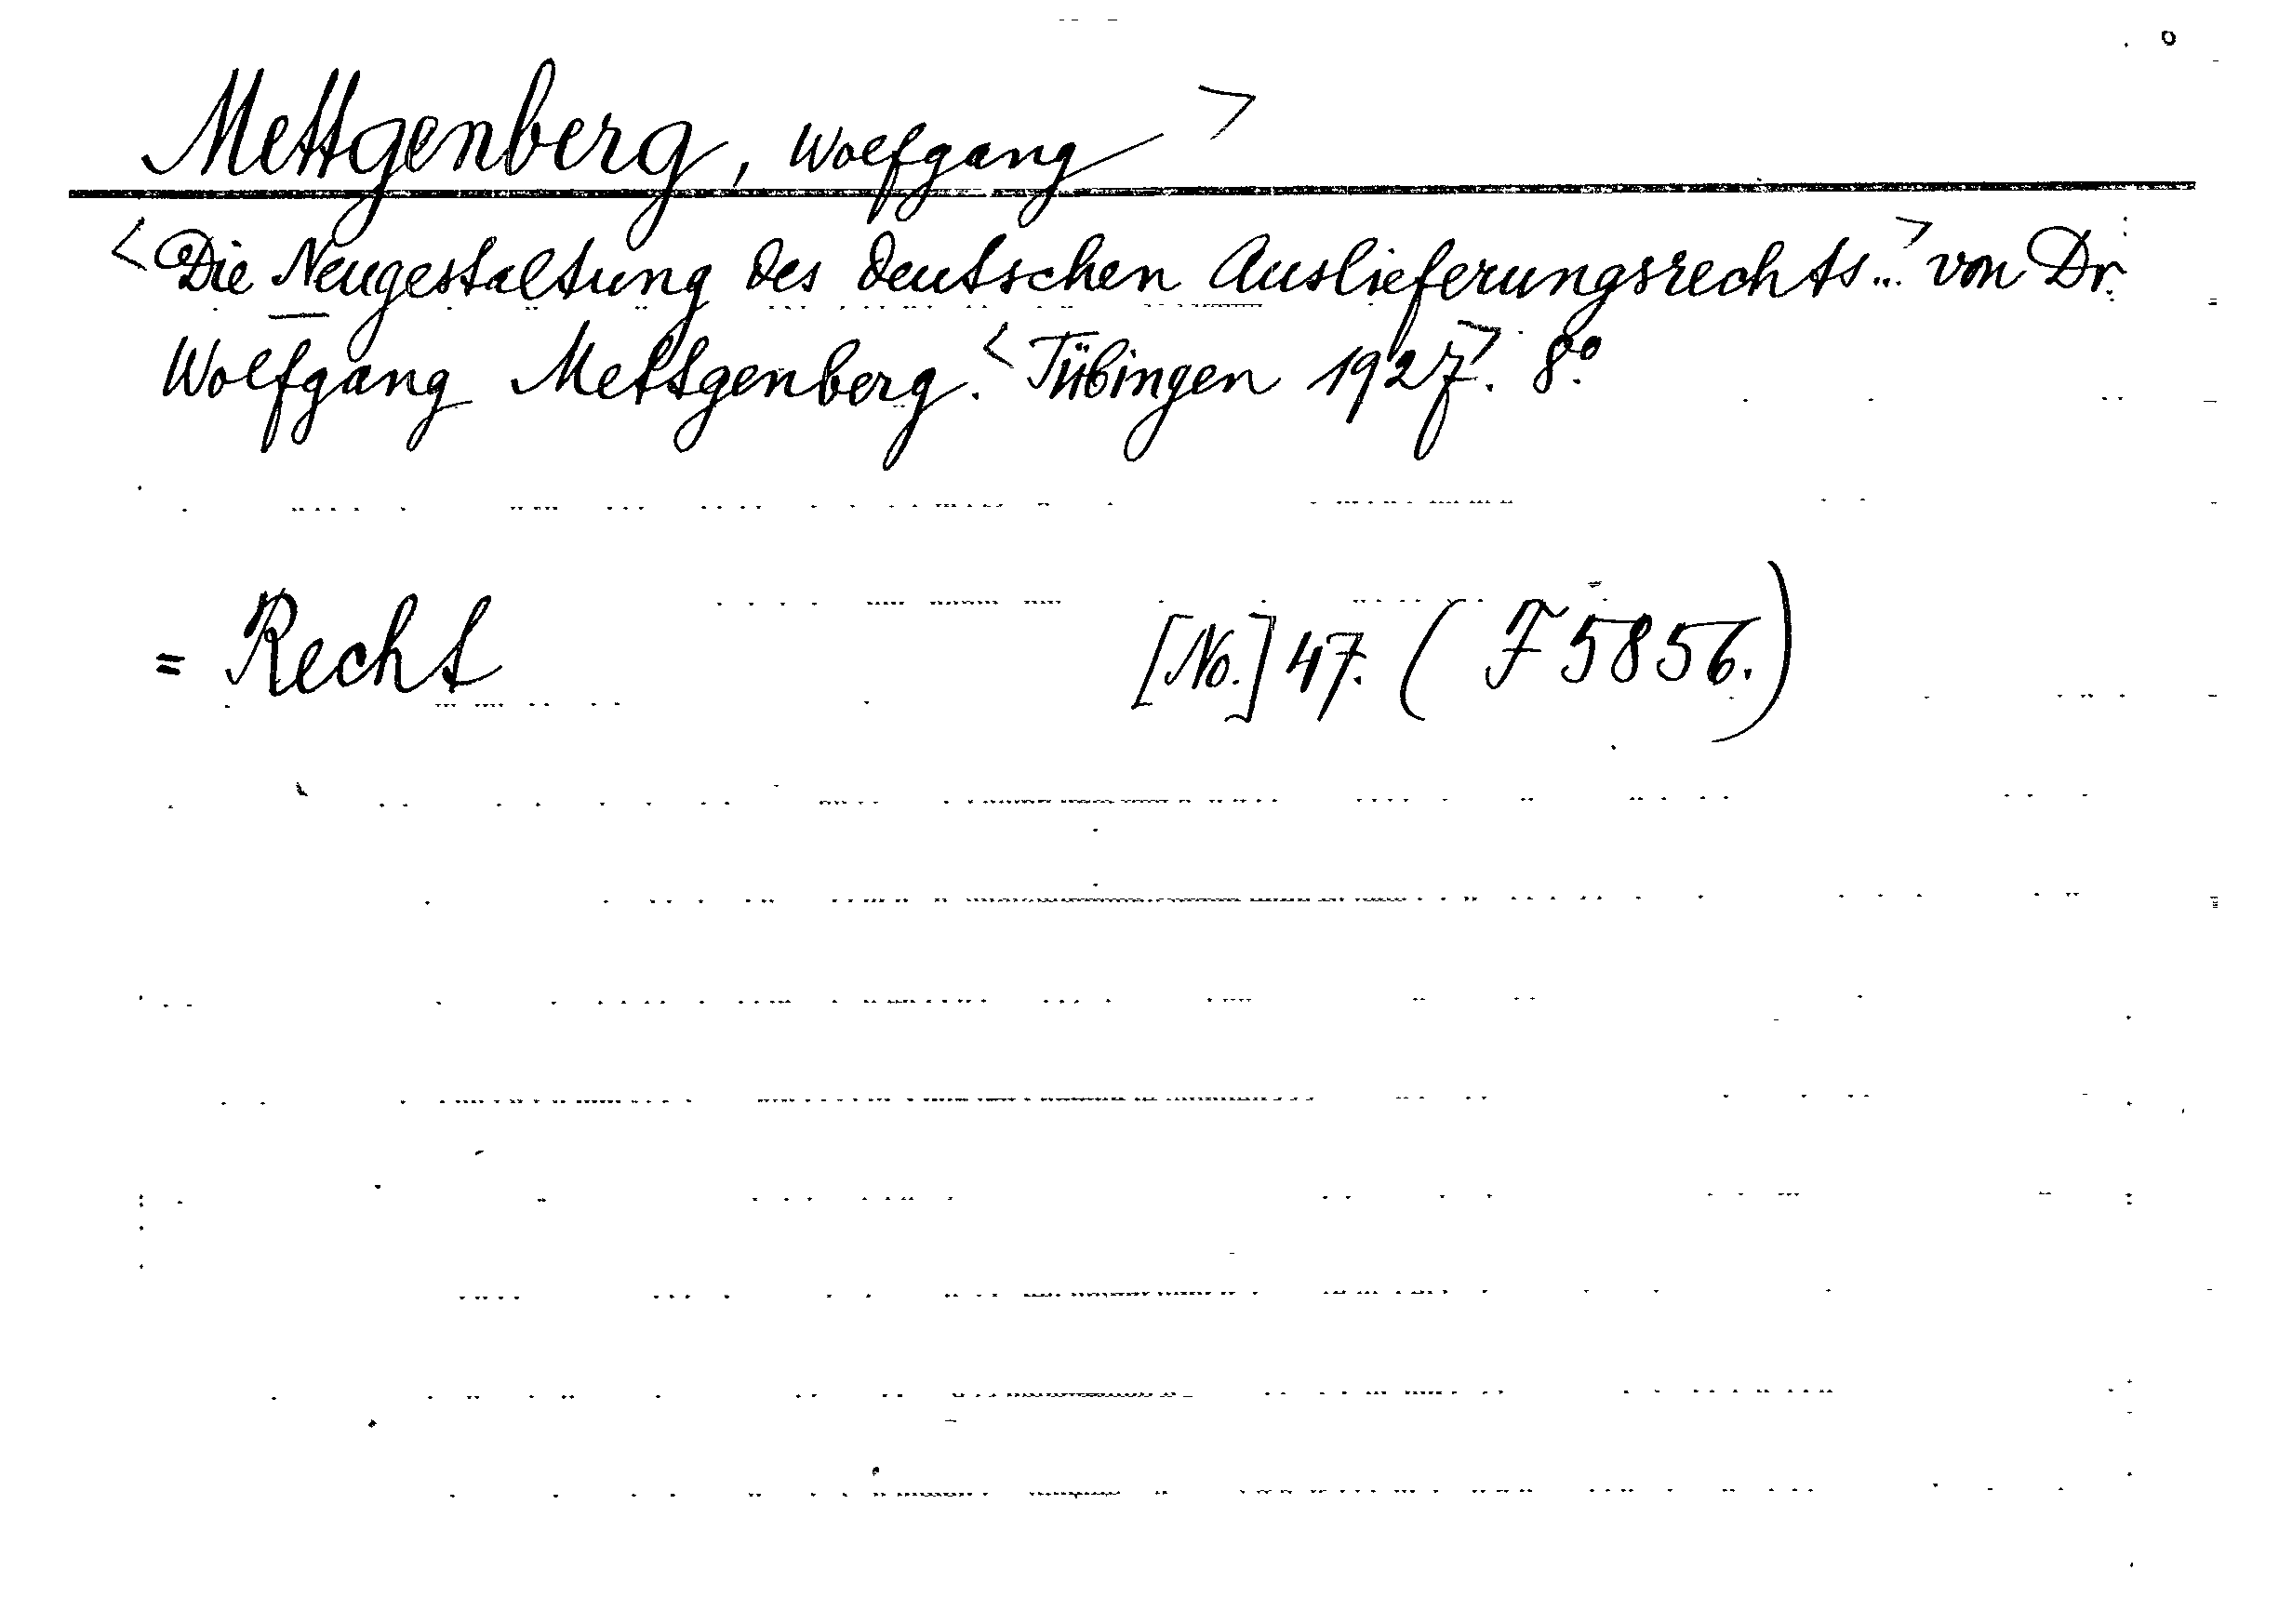 Mettgenberg, Wolfgang >
<Die Neugestaltung des deutschen Auslieferungsrechts...> von Dr.
Wolfgang Mettgenberg. <Tübingen 1927>. 8°.
= Recht [No.] 47. (F 5856.)